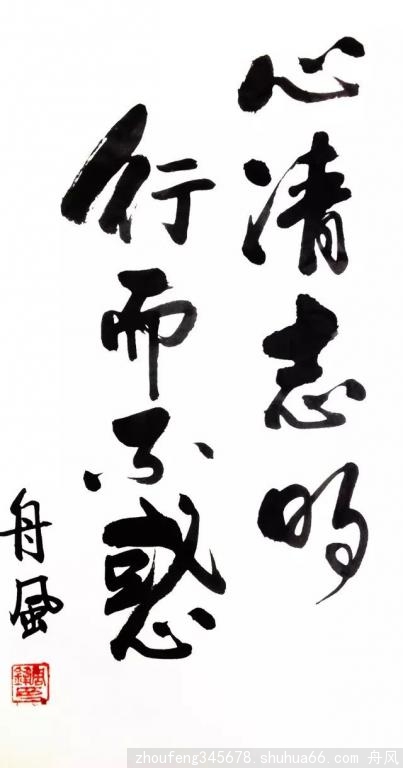 心清志明
行而不惑
舟風
zhoufeng345678.shuhua66.com 舟风